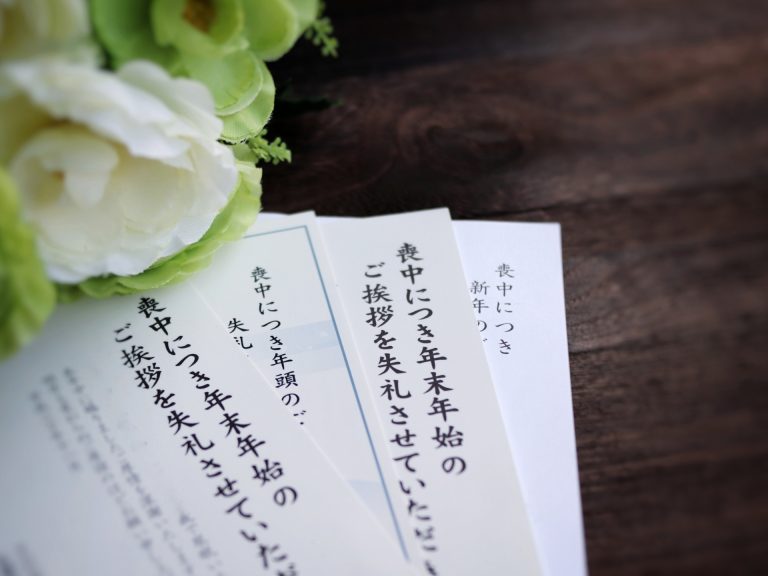 喪中につき
新年のご
喪中につき年末年始の
ご挨拶を失礼させていただき
喪中につき年頭のご
失礼
喪中につき年末年始の
ご挨拶を失礼させていただ